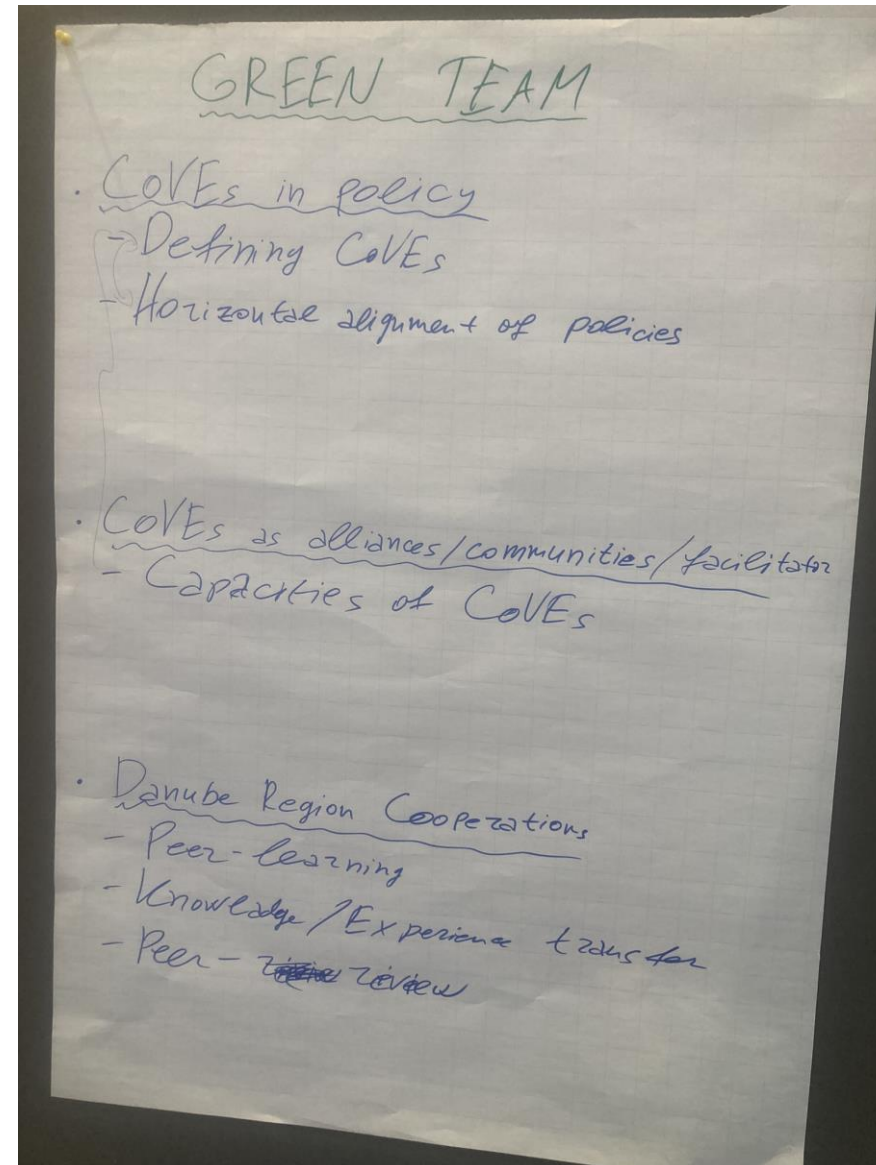 GREEN TEAM
· CoVEs in policy
- Defining CoVEs
- Horizontal alignment of policies
· CoVEs as alliances/communities/facilitator
- Capacities of CoVEs
· Danube Region Cooperations
- Peer-learning
- Knowledge/Experience transfer
- Peer- review